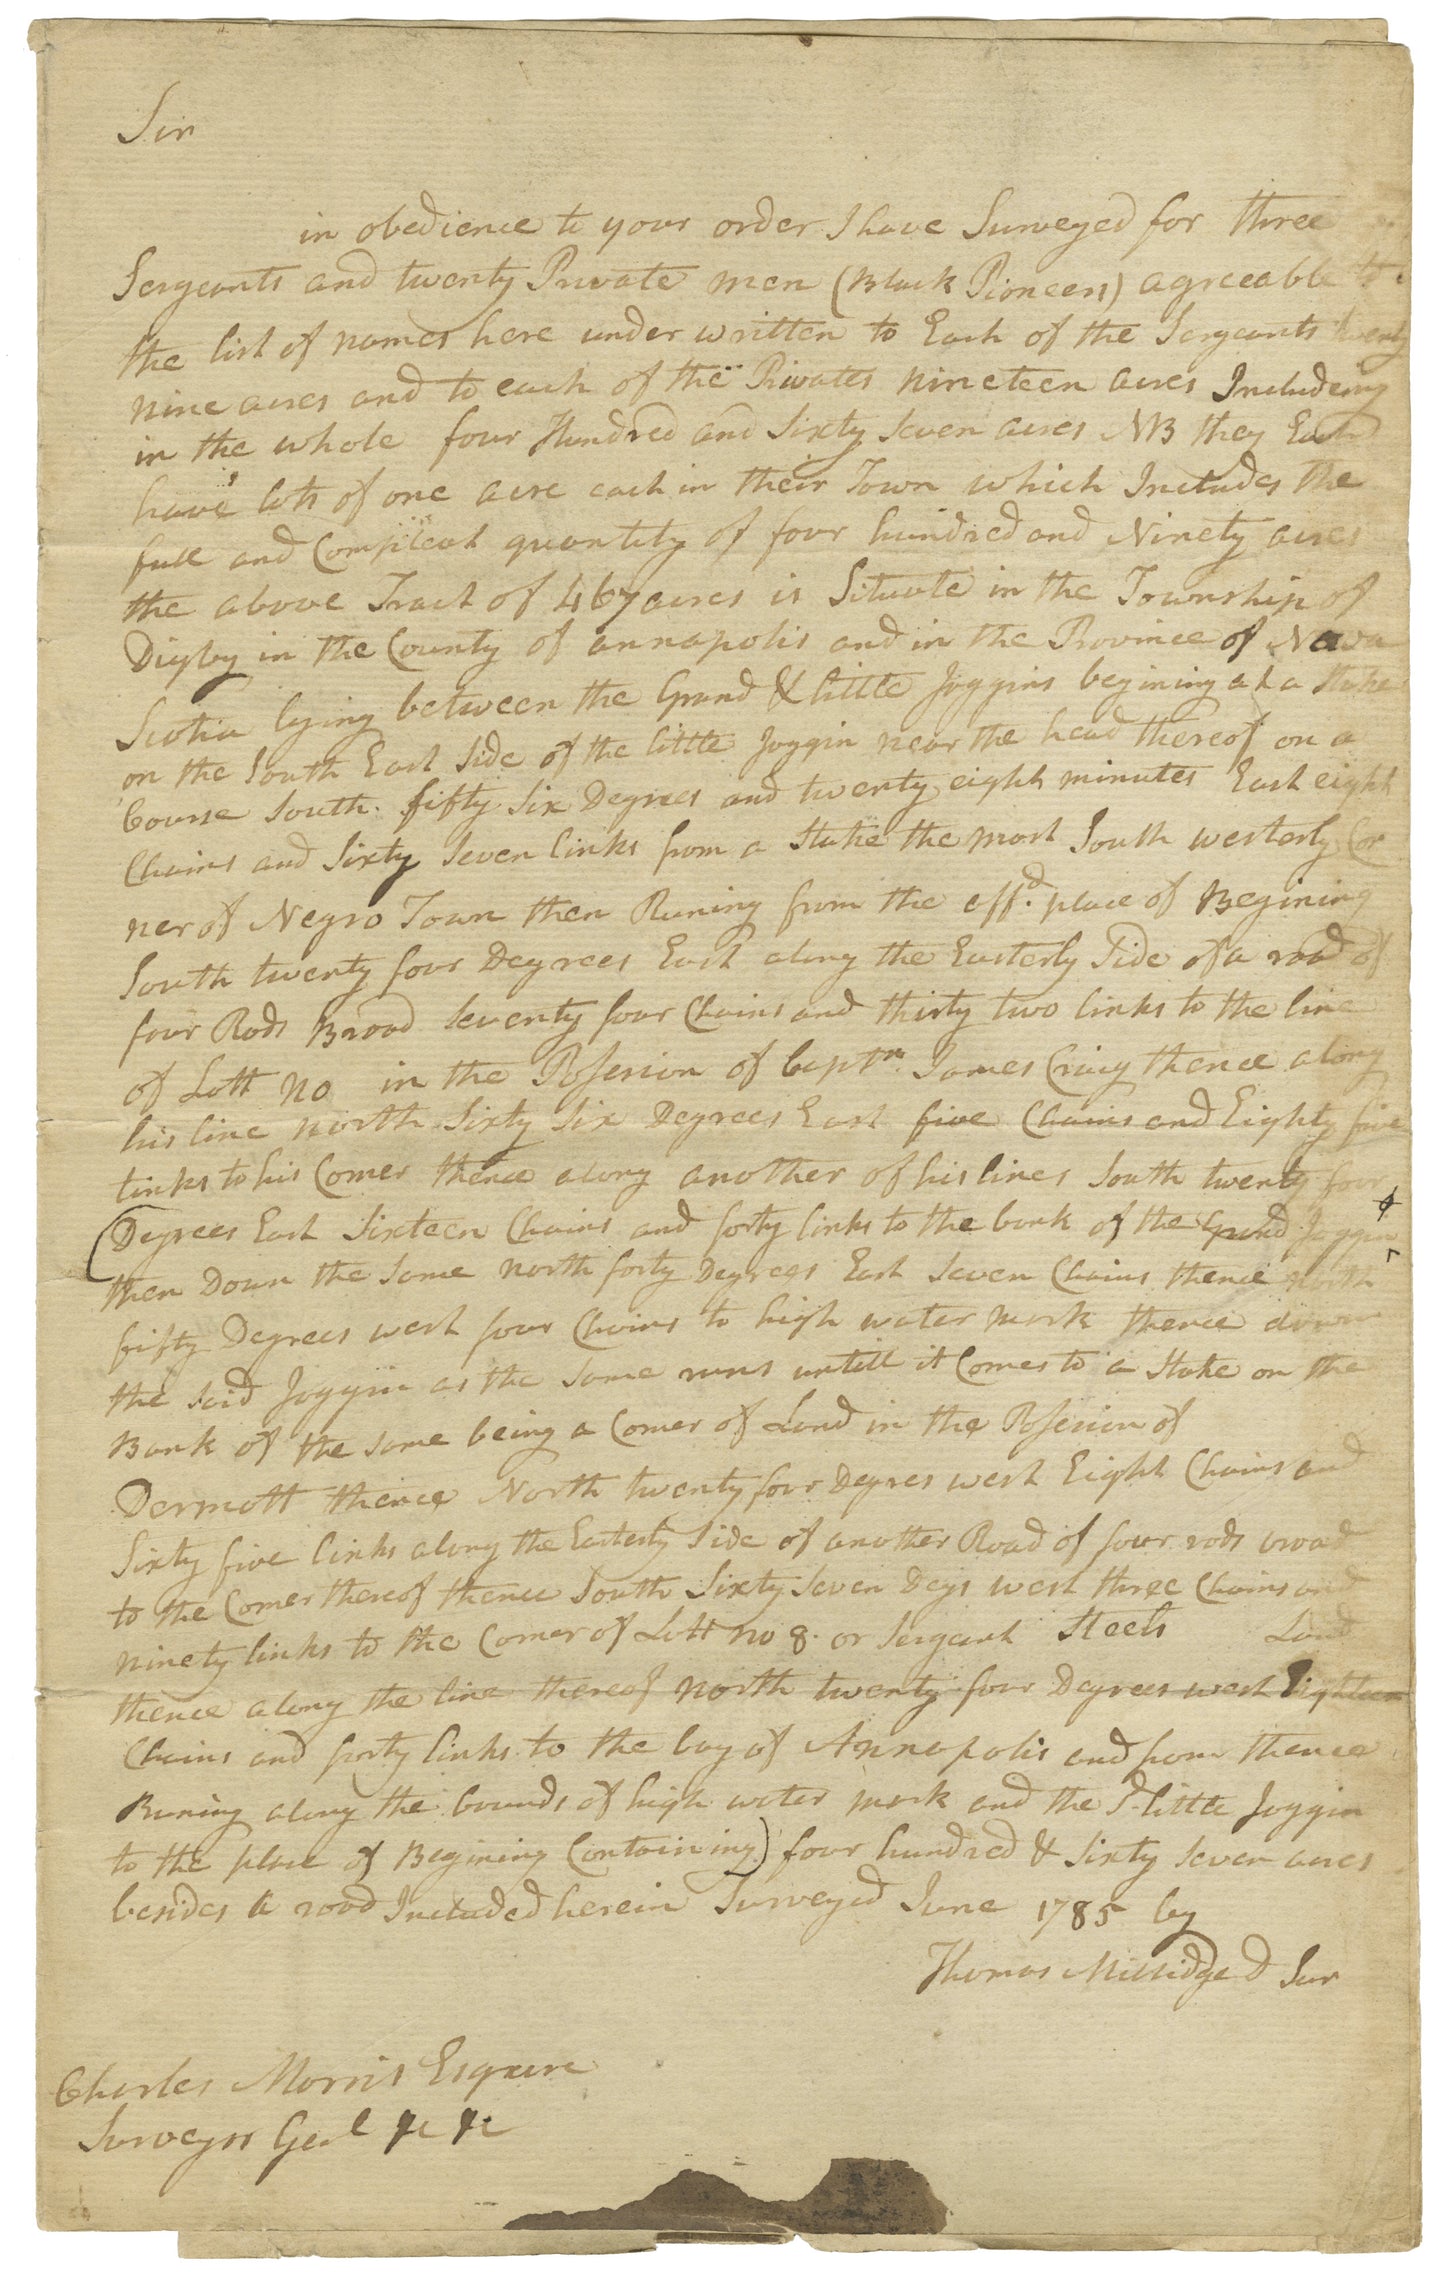 Sir
in obedience to your order I have Surveyed for three
Sergeants and twenty Private men (Black Pioneers) agreeable to
the list of names here under written to Each of the Sergeants twenty
nine acres and to each of the Privates nineteen acres Includeing
in the whole four Hundred and Sixty Seven acres NB they Each
have lots of one acre each in their Town which Includes the
full and Compleat quantity of four hundred and Ninety acres
the above Tract of 467 acres is Situate in the Township of
Digby in the County of annapolis and in the Province of Nova
Scotia lying between the Grand & little Joggins begining at a Stake
on the South East Side of the little Joggin near the head thereof on a
Course South fifty Six Degrees and twenty eight minutes East eight
Chains and Sixty Seven links from a Stake the most South westerly Cor
ner of Negro Town then Runing from the affd. place of Begining
South twenty four Degrees East along the Easterly Side of a road of
four Rods Broad Seventy four Chains and thirty two links to the line
of Lott No in the Possesion of Captn. James Craig thence along
his line north Sixty Six Degrees East five Chains and Eighty five
links to his Corner thence along another of his lines South twenty four
Degrees East Sixteen Chains and forty links to the bank of the Grand Joggin
then Down the Same north forty Degrees East Seven Chains thence north
fifty Degrees west four Chains to high water mark thence down
the Said Joggin as the Same runs untill it Comes to a Stake on the
Bank of the same being a Corner of Land in the Possesion of
Dermott thence North twenty four Degres west Eight Chains and
Sixty five links along the Easterly Side of another Road of four rods broad
to the Corner thereof thence South Sixty Seven Degs west three Chains and
ninety links to the Corner of Lott no 8. or Sergeant Steels Land
thence along the line thereof north twenty four Degrees west Eighteen
Chains and forty links to the bay of Annapolis and from thence
Runing along the bounds of high water mark and the Sd little Joggin
to the place of Begining Containing) four hundred & Sixty Seven acres
besides a road Included herein Surveyed June 1785 by
Thomas Millidge D Sur
Charles Morris Esquire
Surveyor Genl &c &c